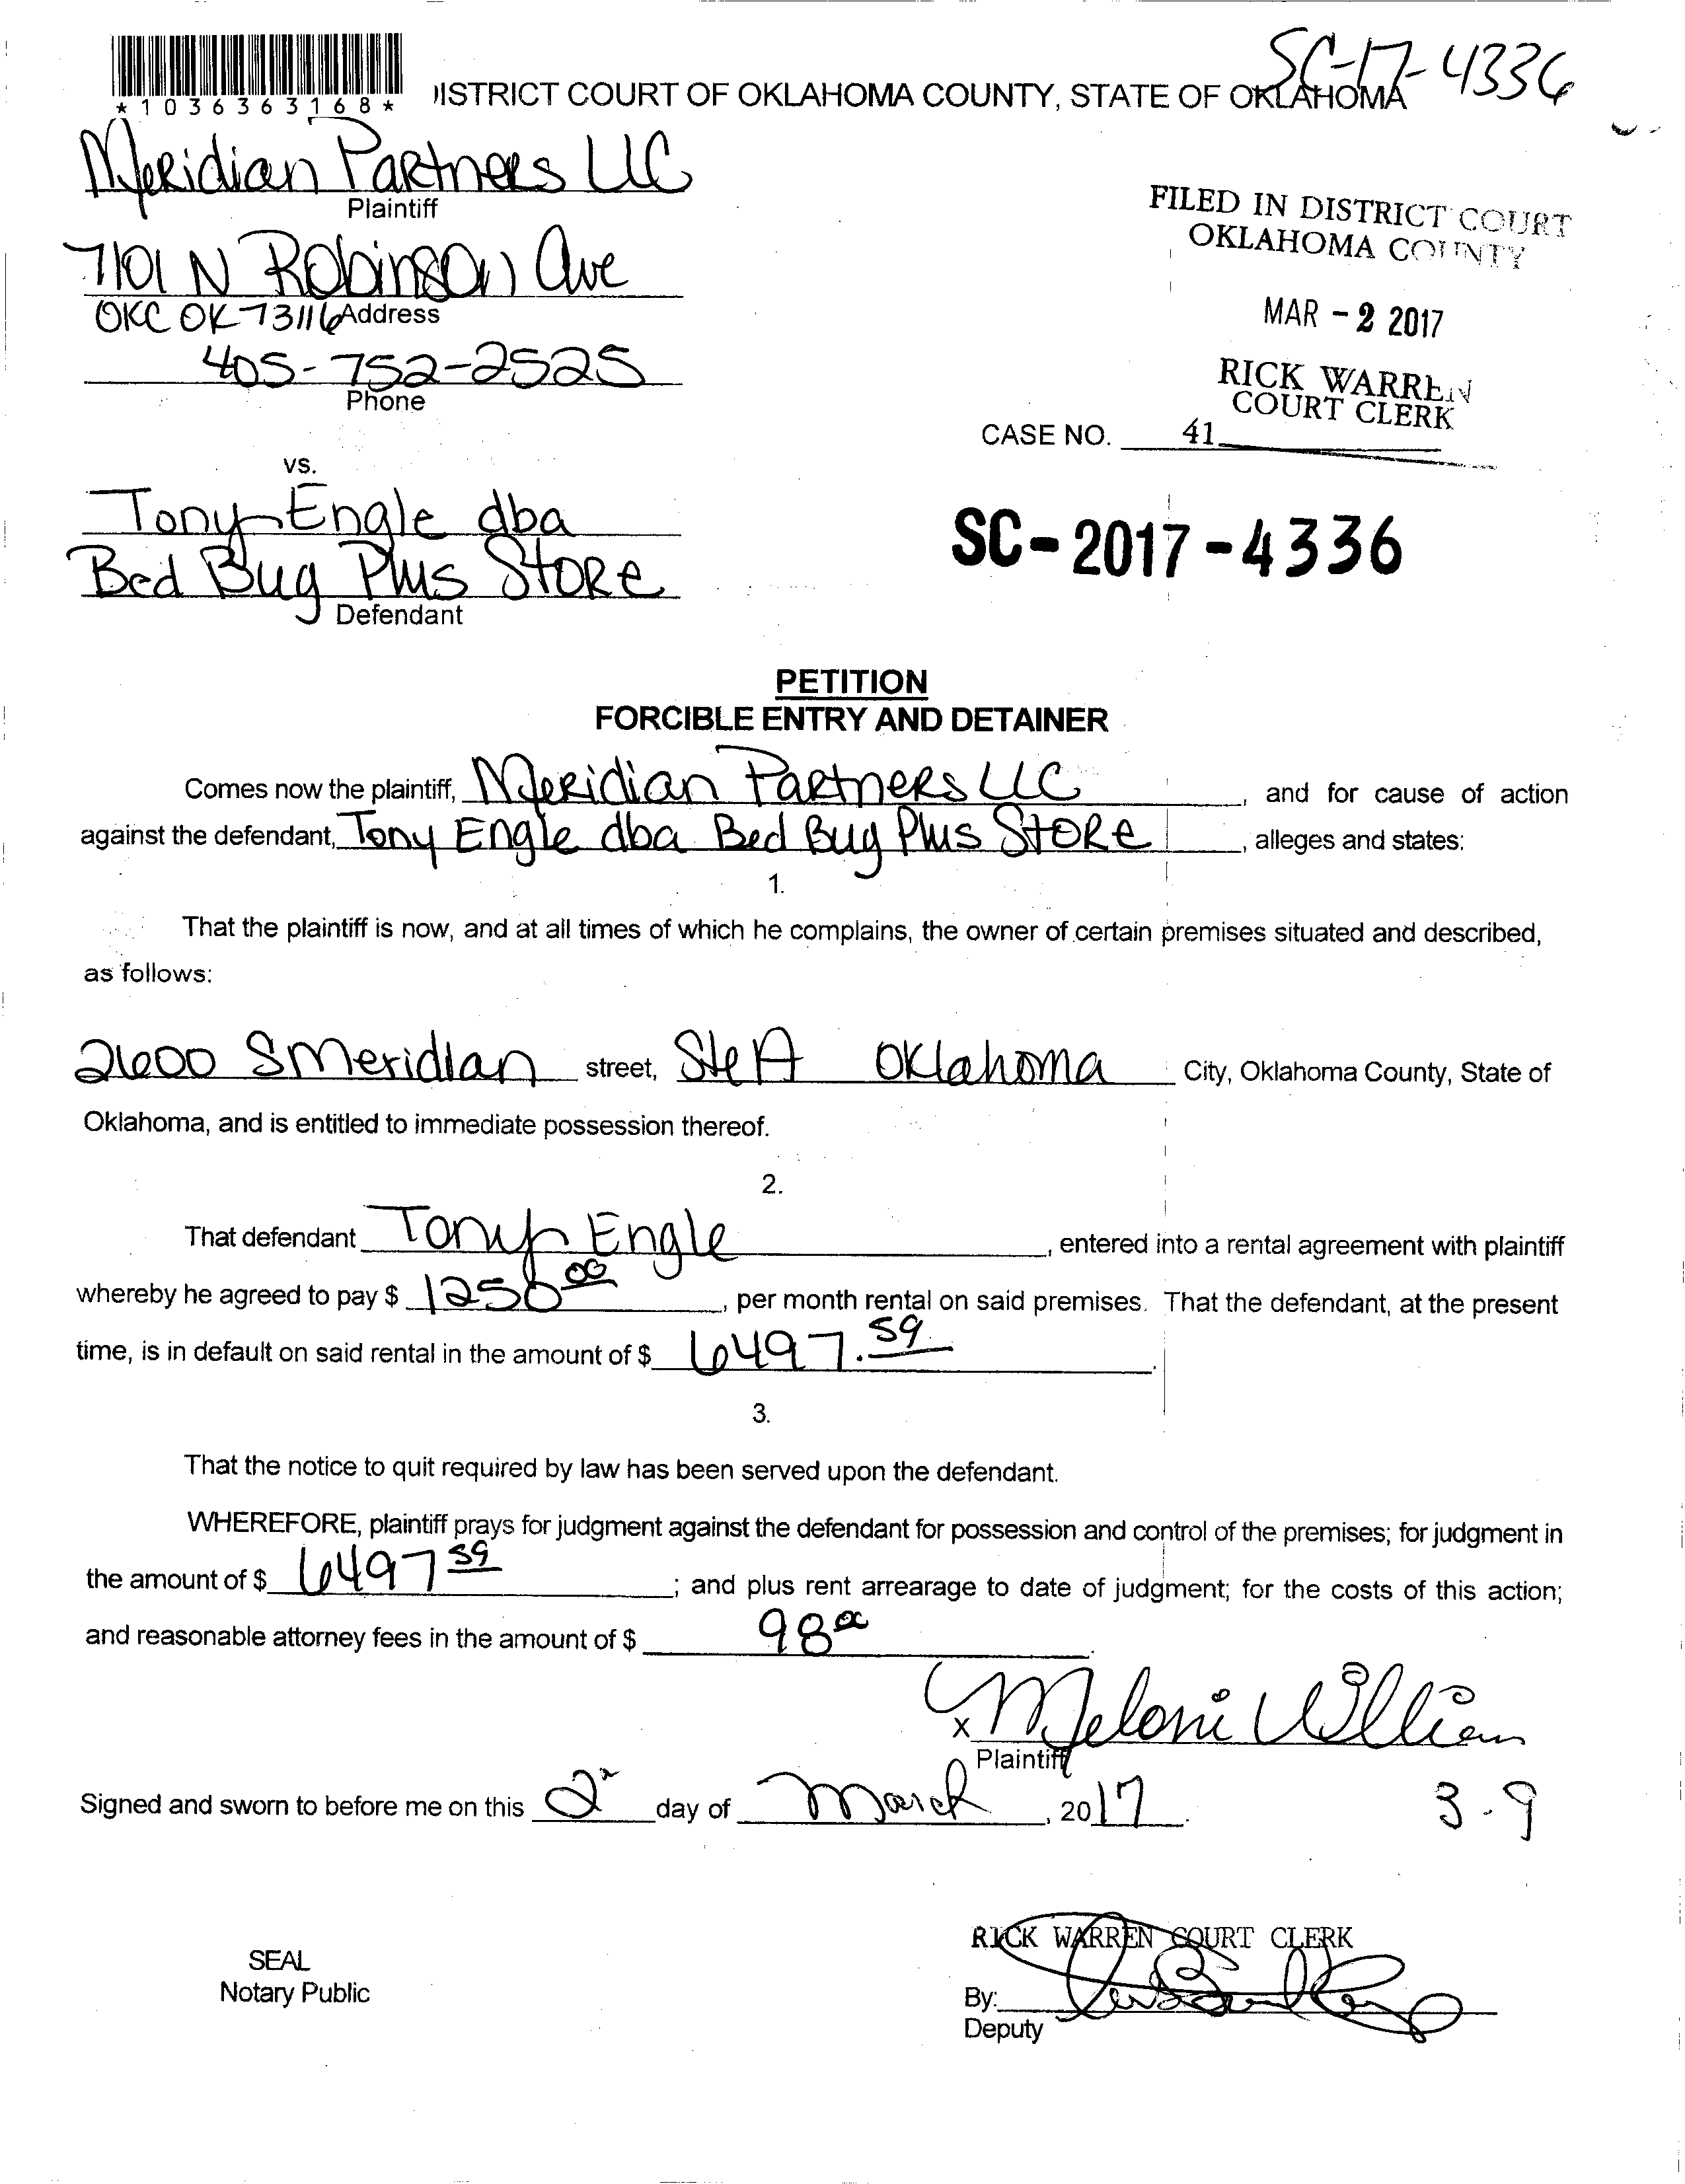 SC-17-4336
*1036363168*
ISTRICT COURT OF OKLAHOMA COUNTY, STATE OF OKLAHOMA
Meridian Partners LLC
Plaintiff
7101 N Robinson Ave
OKC OK 73116 Address
405-752-2525
Phone
FILED IN DISTRICT COURT
OKLAHOMA COUNTY
MAR - 2 2017
RICK WARREN
COURT CLERK
CASE NO. 41
vs.
Tony Engle dba
Bed Bug Plus Store
Defendant
SC-2017-4336
PETITION
FORCIBLE ENTRY AND DETAINER
Comes now the plaintiff, Meridian Partners LLC, and for cause of action
against the defendant, Tony Engle dba Bed Bug Plus Store, alleges and states:
1.
That the plaintiff is now, and at all times of which he complains, the owner of certain premises situated and described,
as follows:
2600 S Meridian street, Ste A Oklahoma City, Oklahoma County, State of
Oklahoma, and is entitled to immediate possession thereof.
2.
That defendant Tony Engle, entered into a rental agreement with plaintiff
whereby he agreed to pay $ 1250 00, per month rental on said premises. That the defendant, at the present
time, is in default on said rental in the amount of $ 6497.59.
3.
That the notice to quit required by law has been served upon the defendant.
WHEREFORE, plaintiff prays for judgment against the defendant for possession and control of the premises; for judgment in
the amount of $ 6497 59; and plus rent arrearage to date of judgment; for the costs of this action;
and reasonable attorney fees in the amount of $ 98 00.
x Meloni William
Plaintiff
Signed and sworn to before me on this 2 day of March, 2017.
3-9
RICK WARREN COURT CLERK
SEAL
Notary Public
By:
Deputy